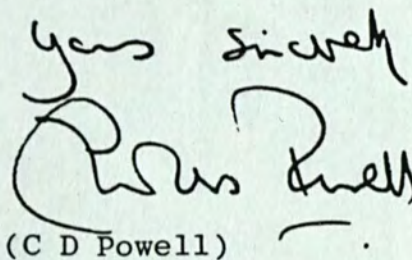 Yours sincerely
Charles Powell
(C D Powell)